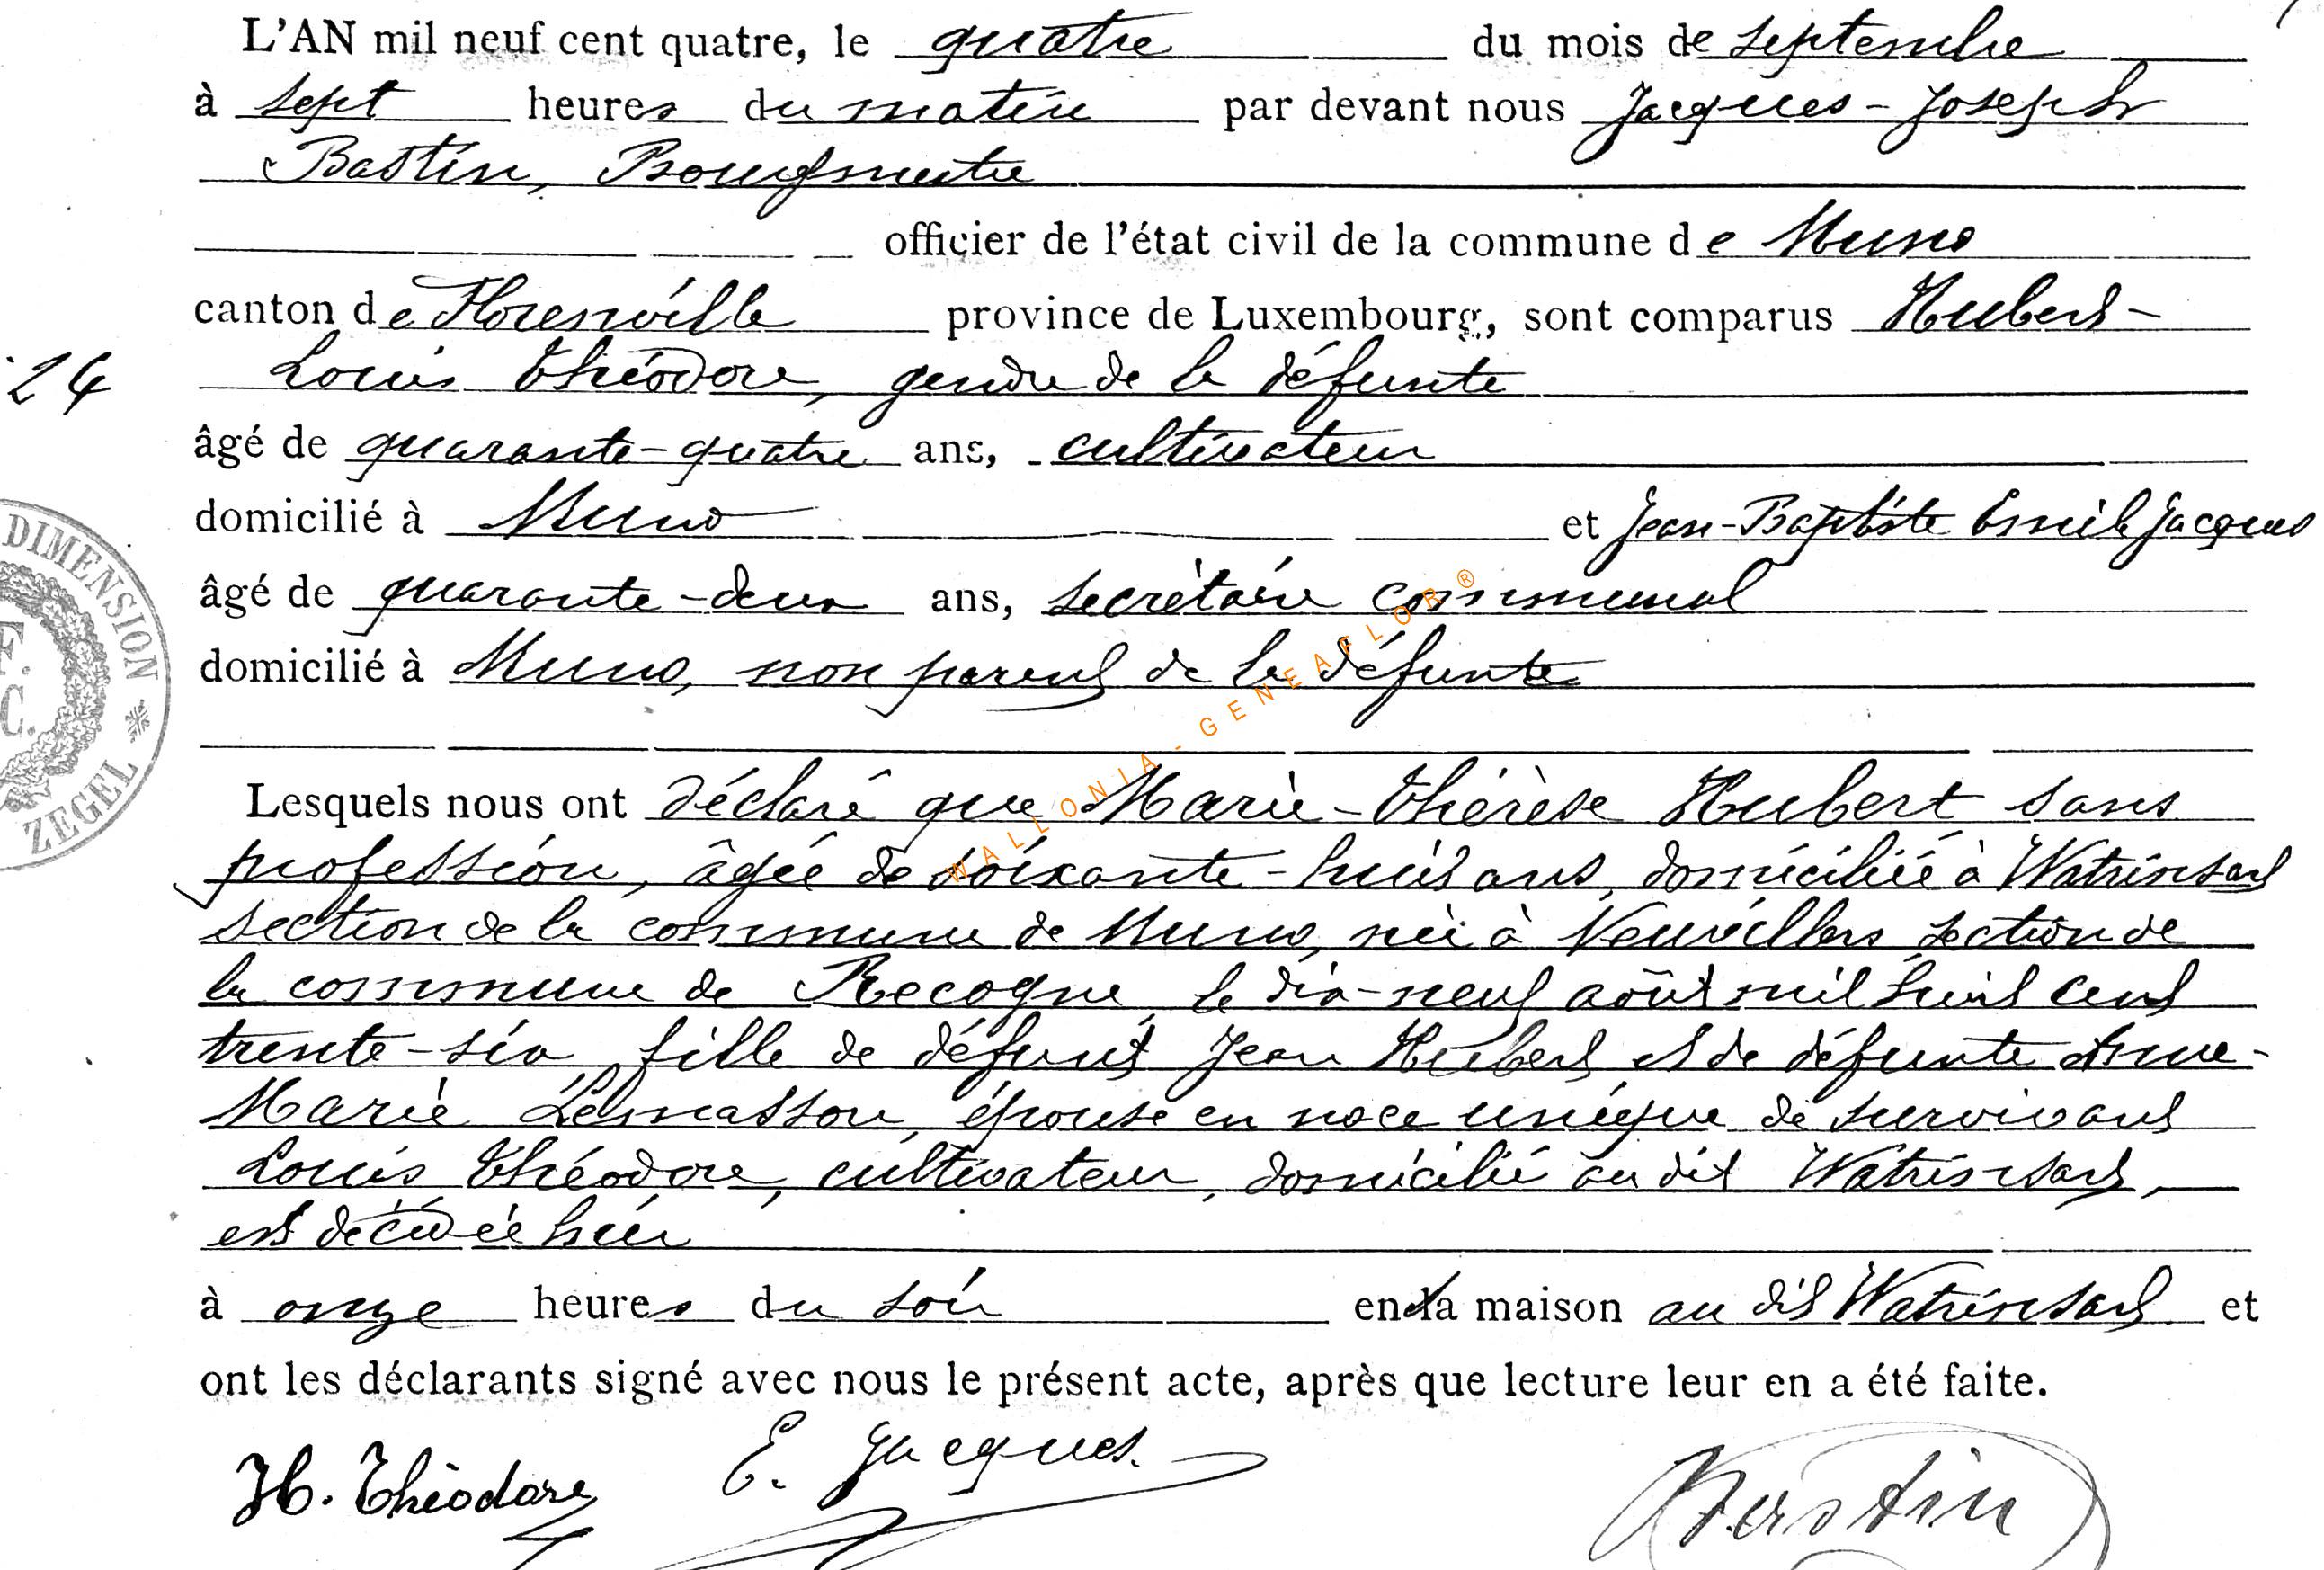 L'AN mil neuf cent quatre, le quatre du mois de septembre
à sept heures du matin par devant nous Jacques-Joseph
Bastin, Bourgmestre
officier de l'état civil de la commune de Muno
canton de Florenville province de Luxembourg, sont comparus Hubert-
Louis Théodore, gendre de la défunte
24
âgé de quarante-quatre ans, cultivateur
domicilié à Muno et Jean-Baptiste Emile Jacques
âgé de quarante-deux ans, secrétaire communal
domicilié à Muno, non parent de la défunte
DIMENSION
F.
C.
ZEGEL
WALLONIA - GENEAFLOR ®
Lesquels nous ont déclaré que Marie-Thérèse Hubert sans
profession, âgée de soixante-huit ans, domiciliée à Watrinsart
section de la commune de Muno, née à Neuvillers section de
la commune de Recogne, le dix-neuf août mil huit cent
trente-six, fille de défunt Jean Hubert et de défunte Anne-
Marie Lemasson, épouse en noce unique de survivant
Louis Théodore, cultivateur, domicilié au dit Watrinsart,
est décédée hier
à onze heures du soir en sa maison au dit Watrinsart et
ont les déclarants signé avec nous le présent acte, après que lecture leur en a été faite.
H. Théodore E. Jacques. Bastin